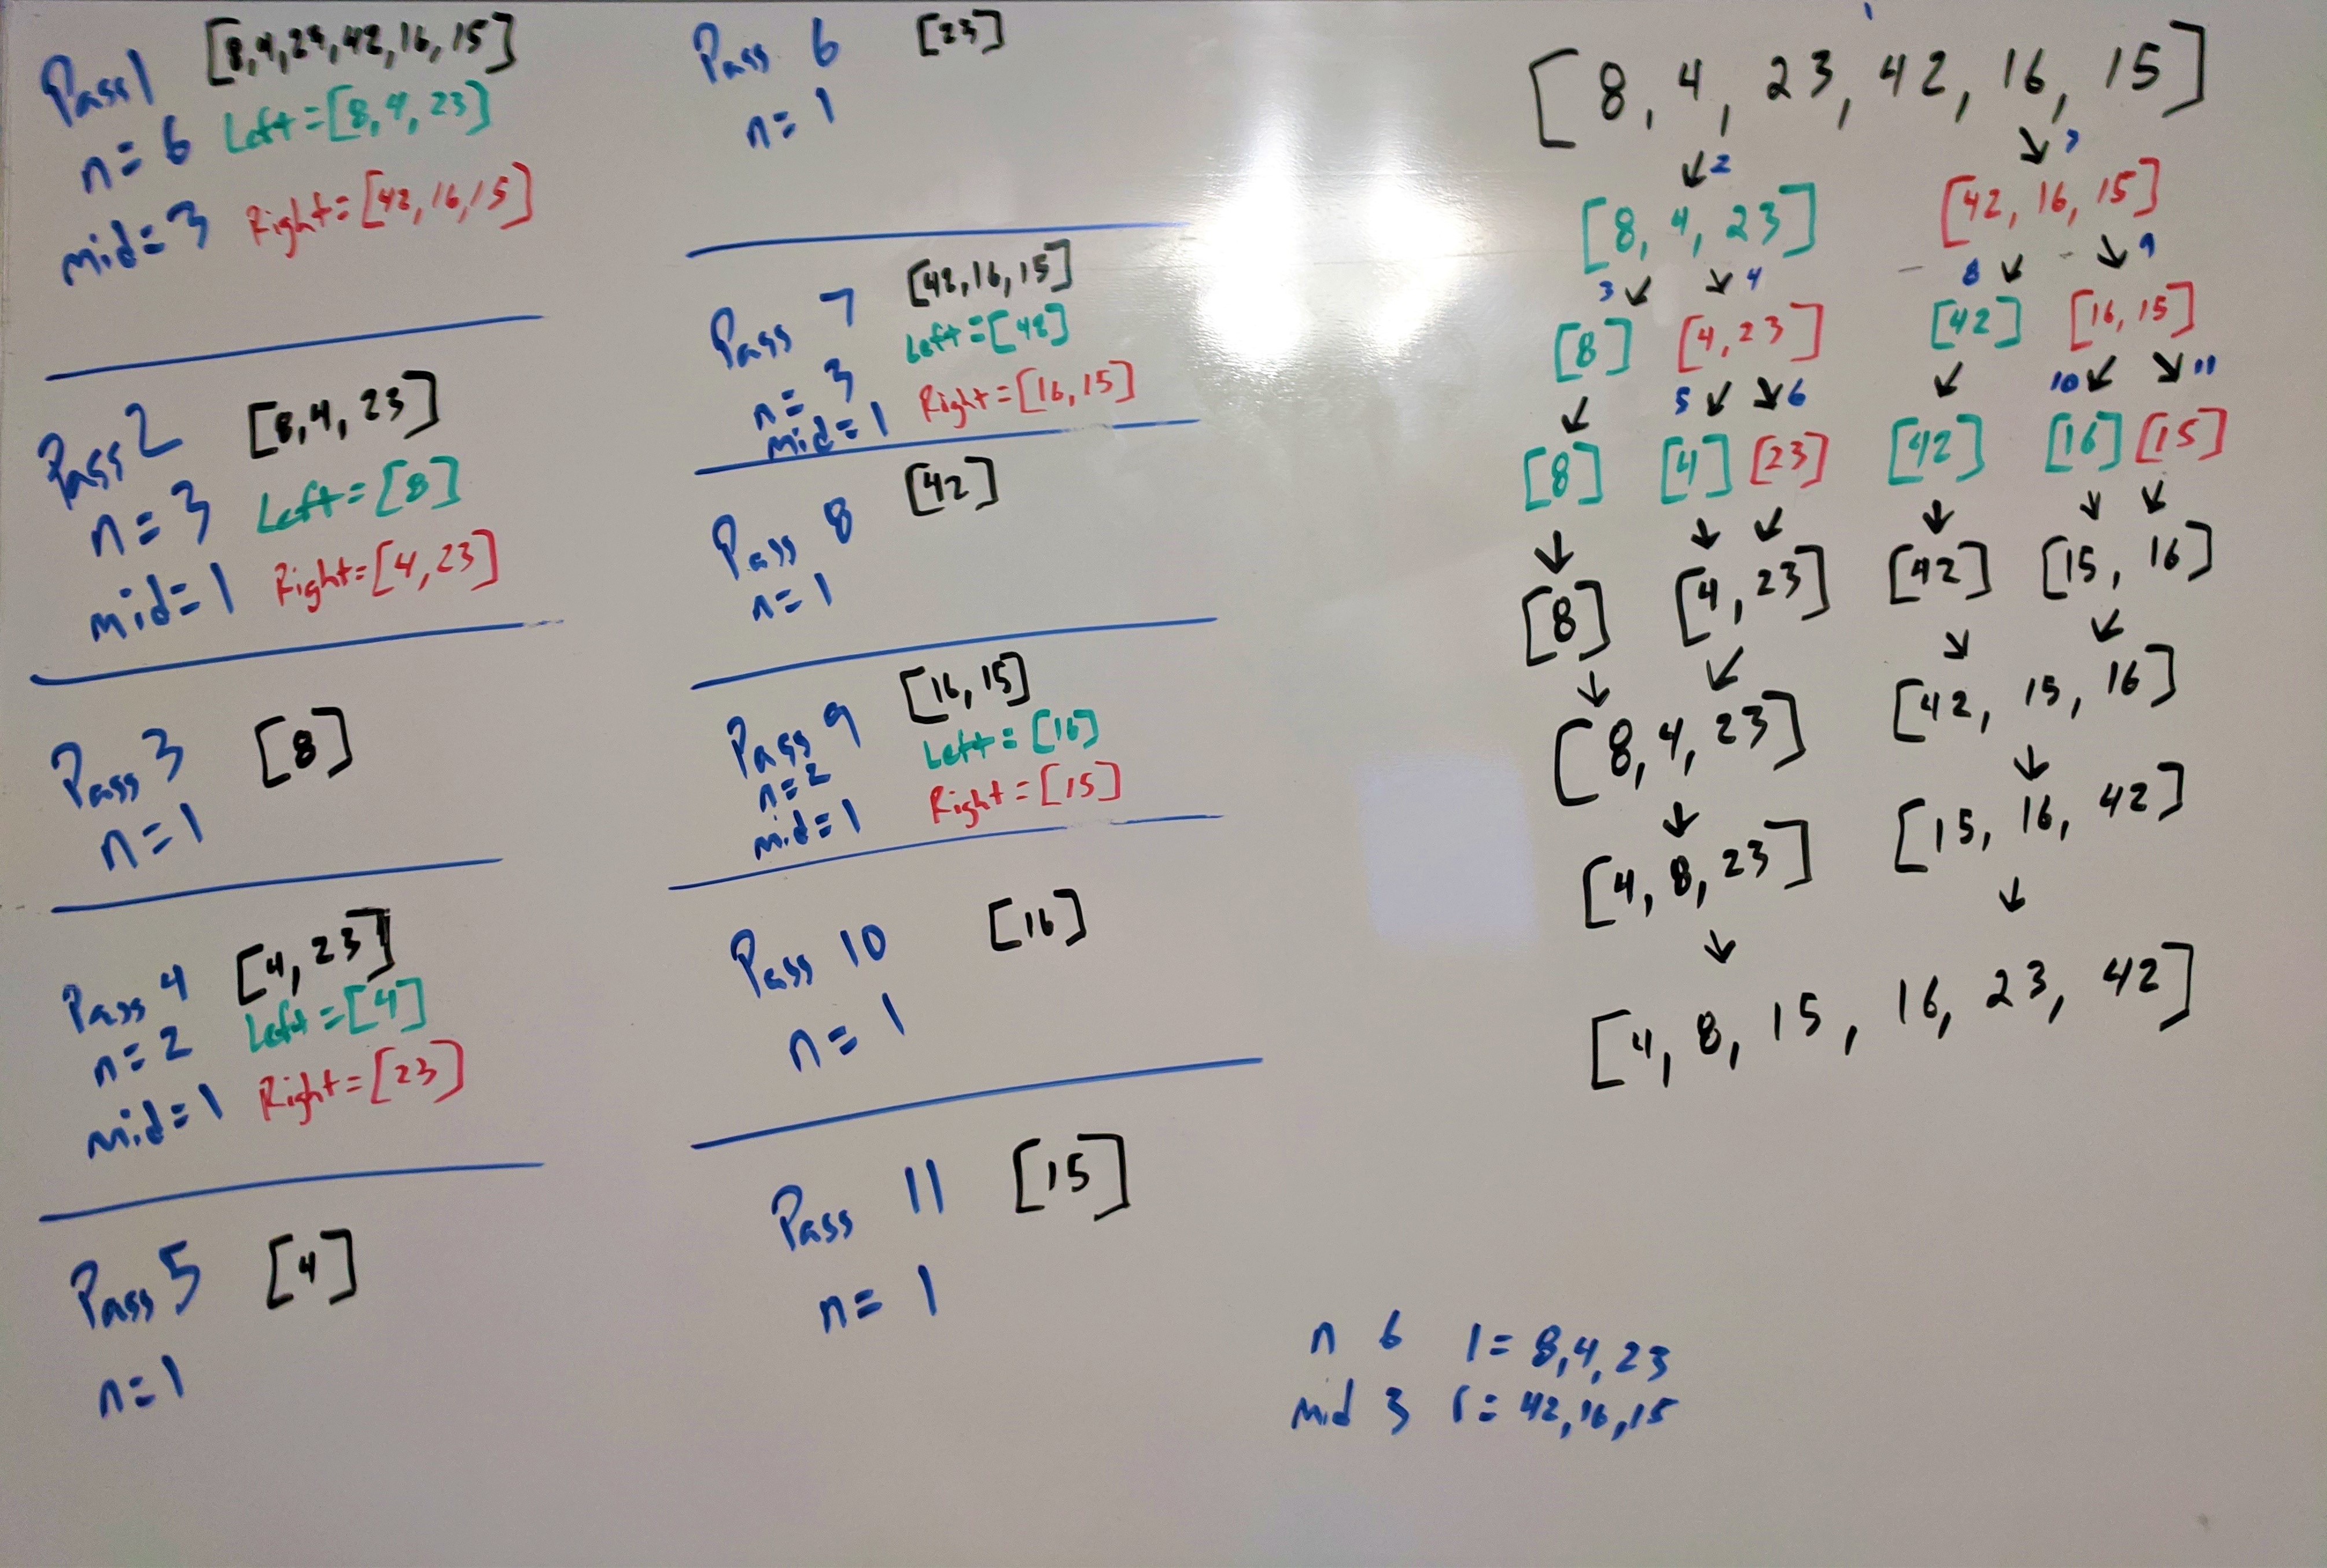 Pass 1 [8,4,23,42,16,15]
n=6 Left=[8,4,23]
mid=3 Right=[42,16,15]
Pass 2 [8,4,23]
n=3 Left=[8]
mid=1 Right=[4,23]
Pass 3 [8]
n=1
Pass 4 [4,23]
n=2 Left=[4]
mid=1 Right=[23]
Pass 5 [4]
n=1
Pass 6 [23]
n=1
Pass 7 [42,16,15]
Left=[42]
n=3
mid=1 Right=[16,15]
Pass 8 [42]
n=1
Pass 9 [16,15]
n=2 Left=[16]
mid=1 Right=[15]
Pass 10 [16]
n=1
Pass 11 [15]
n=1
1
[8, 4, 23, 42, 16, 15]
2 7
[8, 4, 23] [42, 16, 15]
3 4 8 9
[8] [4,23] [42] [16,15]
5 6 10 11
[8] [4] [23] [42] [16] [15]
[8] [4,23] [42] [15, 16]
[8,4,23] [42, 15, 16]
[4,8,23] [15, 16, 42]
[4, 8, 15, 16, 23, 42]
n 6 l= 8,4,23
mid 3 r= 42,16,15